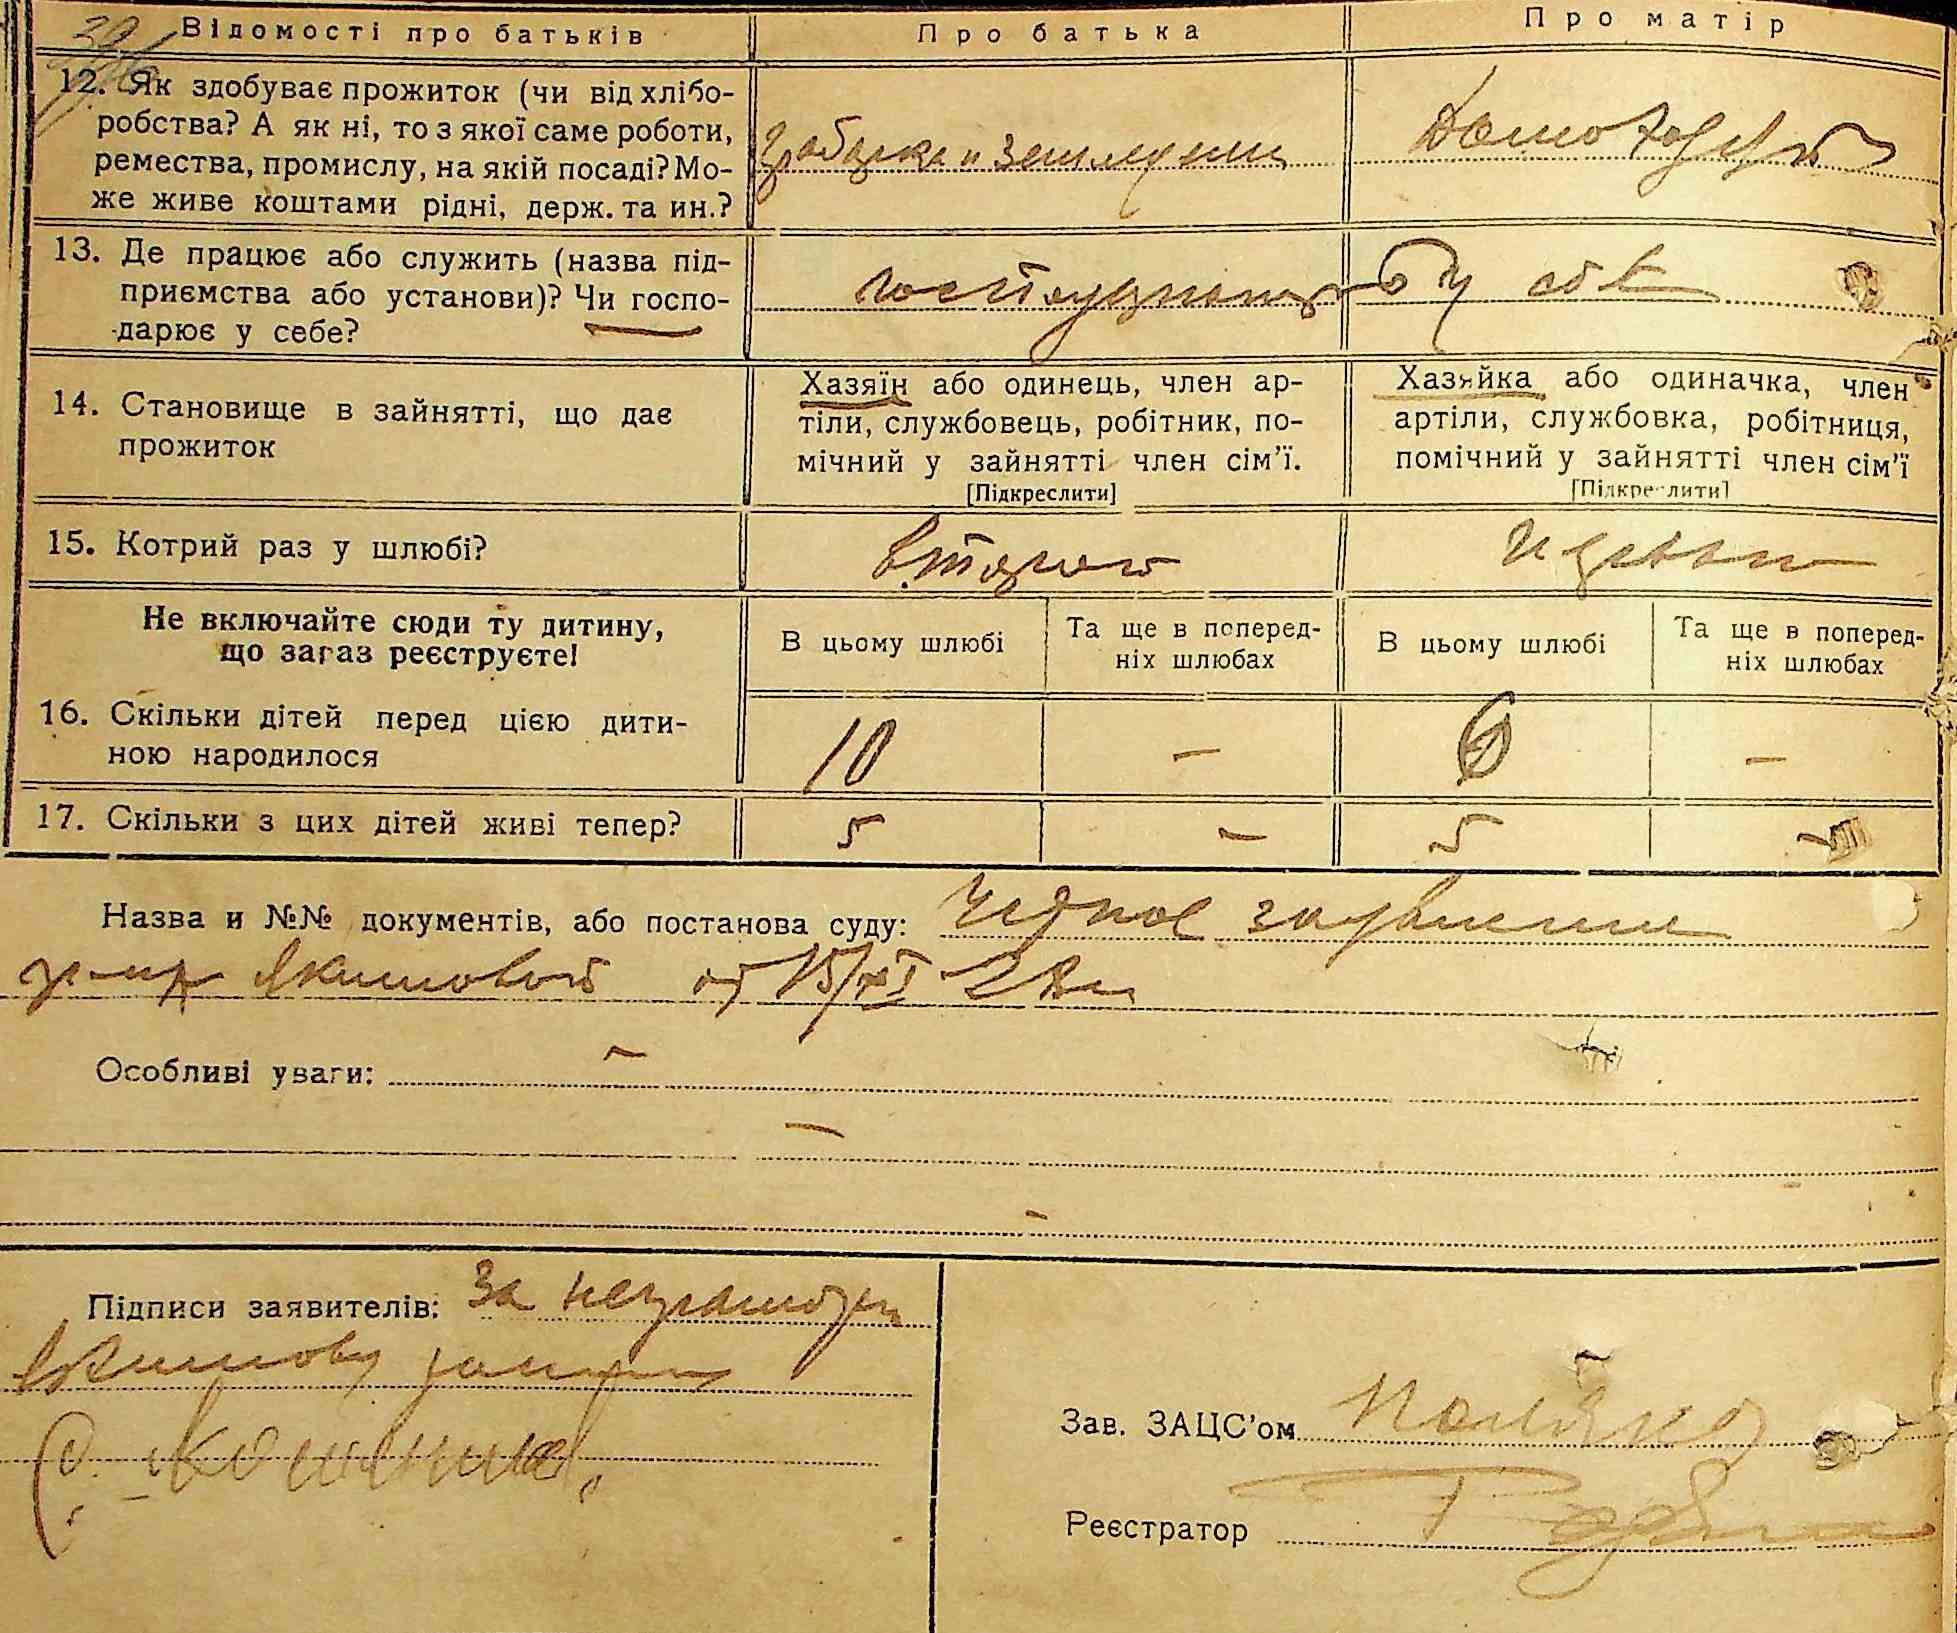 Відомості про батьків
Про батька
Про матір
12. Як здобуває прожиток (чи від хлібо-
робства? А як ні, то з якої саме роботи,
ремества, промислу, на якій посаді? Мо-
же живе коштами рідні, держ. та ин.?
13. Де працює або служить (назва під-
приємства або установи)? Чи госпо-
дарює у себе?
у себе
14. Становище в зайнятті, що дає
прожиток
Хазяїн або одинець, член ар-
тіли, службовець, робітник, по-
мічний у зайнятті член сім'ї.
[Підкреслити]
Хазяйка або одиначка, член
артіли, службовка, робітниця,
помічний у зайнятті член сім'ї
[Підкреслити]
15. Котрий раз у шлюбі?
второй
первый
Не включайте сюди ту дитину,
що зараз реєструєте!
В цьому шлюбі
Та ще в поперед-
ніх шлюбах
В цьому шлюбі
Та ще в поперед-
ніх шлюбах
16. Скільки дітей перед цією дити-
ною народилося
10
–
–
17. Скільки з цих дітей живі тепер?
5
–
5
–
Назва и №№ документів, або постанова суду: заявление
Якимовой от 15/XI
Особливі уваги: –
–
–
Підписи заявителів: За неграмотн
Якимову
Зав. ЗАЦС'ом
Реєстратор